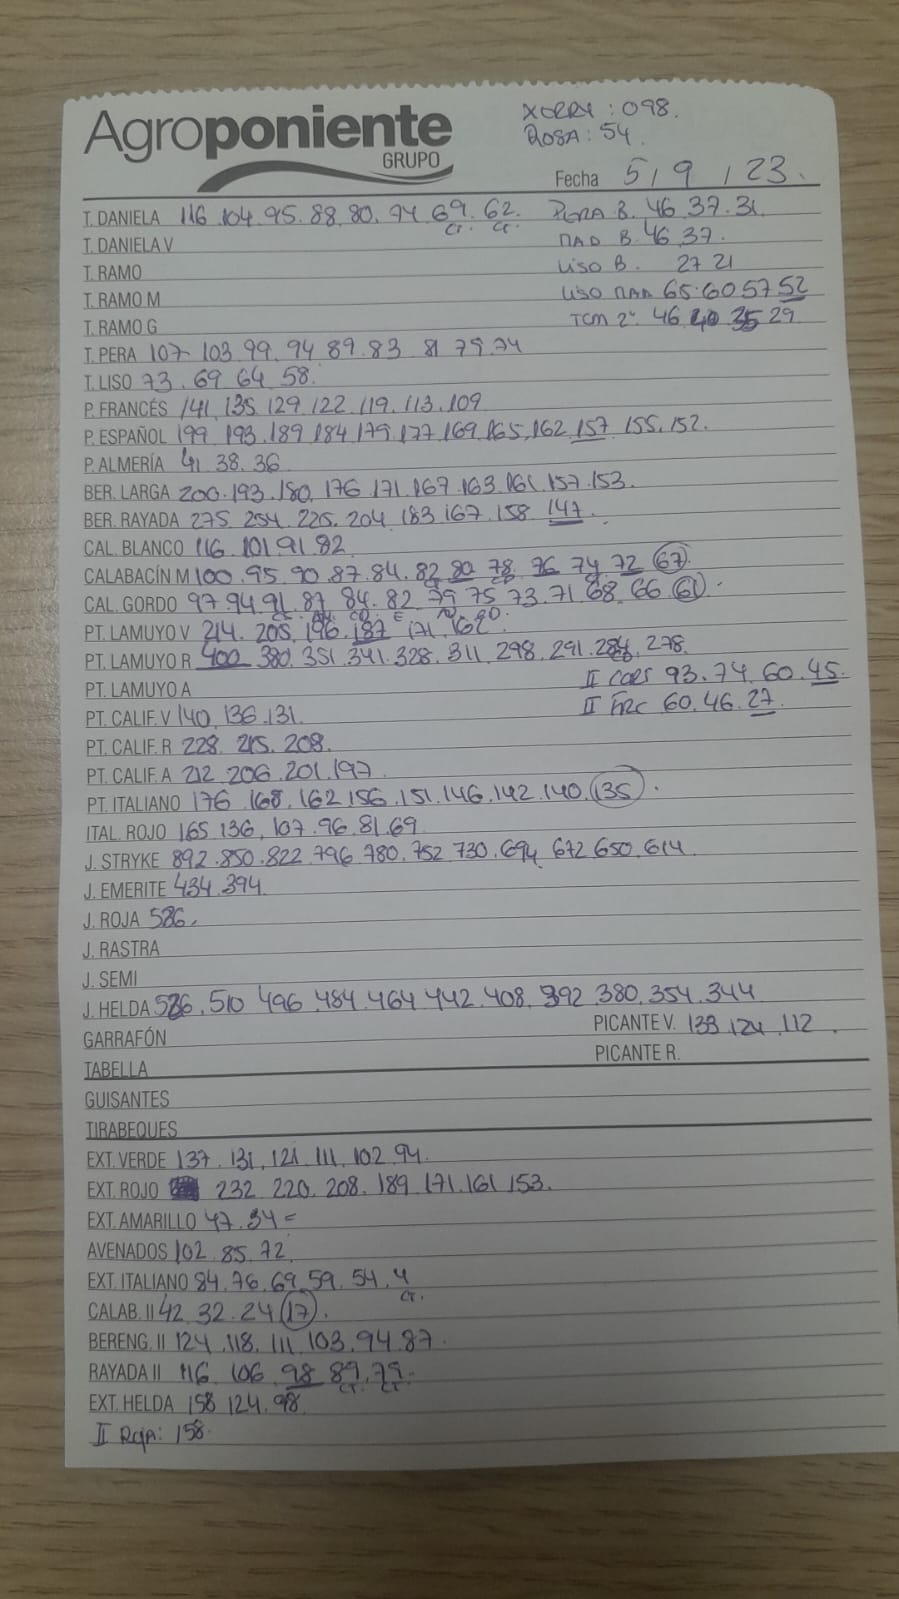 Agroponiente
GRUPO
XERRY : 098.
ROSA : 54.
Fecha 5 / 9 / 23.
T. DANIELA 116. 104. 95. 88. 80. 74 69. 62. PERA B. 46. 37. 31.
CT. CT.
T. DANELA V MAD B. 46. 37.
T. RAMO LISO B. 27 21
T. RAMO M LISO MAD 65. 60 57 52
T. RAMO G TCM 2ª 46 40 35 29
T. PERA 107 103. 99. 94 89. 83 81 79. 74
T. LISO 73. 69 64 58.
P. FRANCÉS 141. 135. 129. 122. 119. 113. 109
P. ESPAÑOL 199 193. 189. 184. 179. 177. 169. 165. 162. 157. 155. 152.
P. ALMERÍA 41 38. 36
BER. LARGA 200. 193. 180. 176 171. 167. 163. 161. 157. 153.
BER. RAYADA 275. 254. 225. 204. 183 167. 158. 147.
CAL. BLANCO 116. 101. 91. 82
CALABACÍN M 100. 95. 90. 87. 84. 82 80 78. 76 74 72 67.
CAL. GORDO 97. 94. 91. 87. 84. 82. 79. 75 73. 71. 68. 66 61.
PT. LAMUYO V 214. 205. 196. 187 171. 162.
PT. LAMUYO R 400 380. 351. 341. 328. 311. 298. 291. 284. 278.
PT. LAMUYO A II CORS 93. 74. 60. 45.
PT. CALIF. V 140. 136. 131. II FRC 60. 46. 27.
PT. CALIF. R 228. 215. 208.
PT. CALIF. A 212. 206. 201. 197.
PT. ITALIANO 176. 168. 162. 156. 151. 146. 142. 140. 135.
ITAL. ROJO 165. 136. 107. 96. 81. 69
J. STRYKE 892. 850. 822. 796. 780. 752. 730. 694. 672 650. 614
J. EMERITE 434. 394.
J. ROJA 586.
J. RASTRA
J. SEMI
J. HELDA 526. 510 496. 484. 464 442. 408. 392 380. 354. 344
GARRAFÓN PICANTE V. 133. 124. 112.
TABELLA PICANTE R.
GUISANTES
TIRABEQUES
EXT. VERDE 137. 131. 121. 111. 102. 94.
EXT. ROJO 232 220. 208. 189. 171. 161. 153.
EXT. AMARILLO 47. 34 =
AVENADOS 102. 85. 72.
EXT. ITALIANO 84. 76. 69. 59. 54. 4
CT.
CALAB. II 42. 32. 24 17.
BERENG. II 124. 118. 111. 103. 94. 87.
RAYADA II 116. 106. 98 89. 79.
CT. CT.
EXT. HELDA 158 124. 98.
II ROJA: 158.